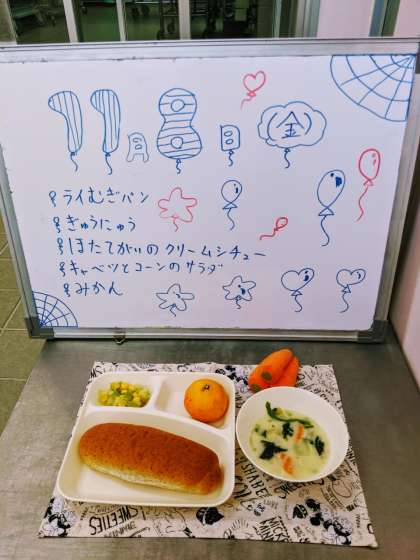 11月8日 金
ライむぎパン
ぎゅうにゅう
ほたてがいのクリームシチュー
キャベツとコーンのサラダ
みかん
SWEETIES